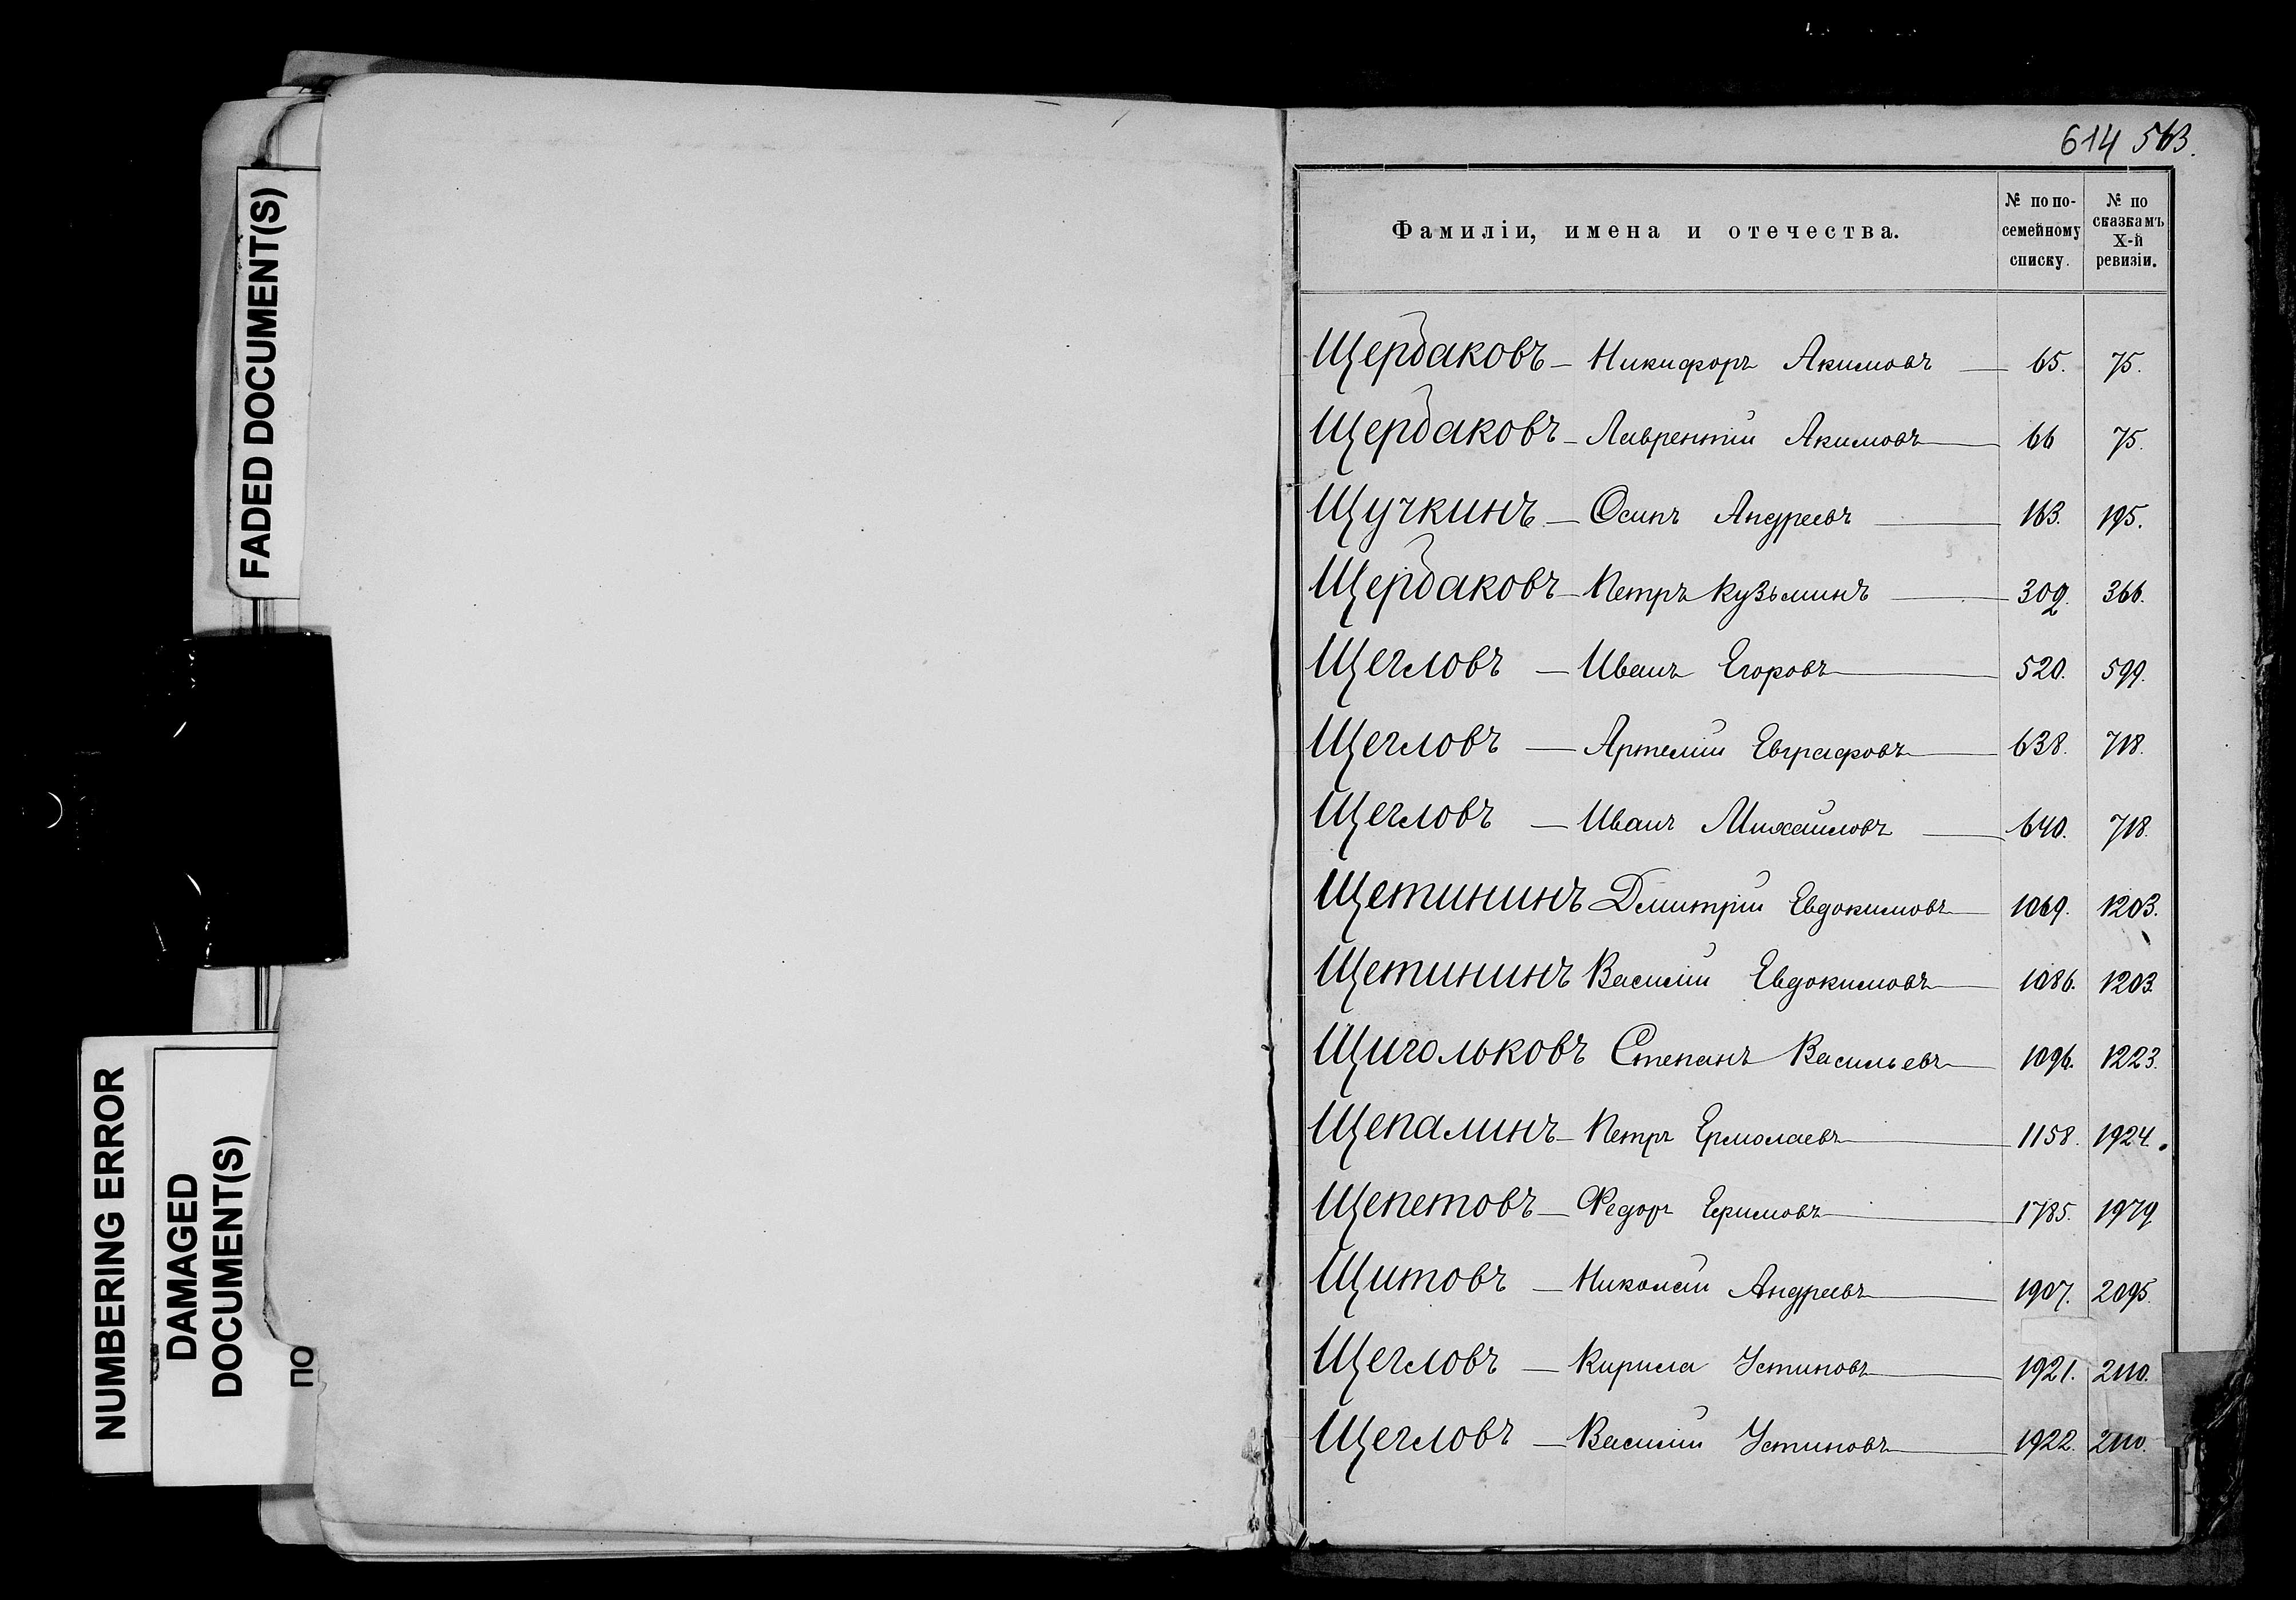 FADED DOCUMENT(S)
NUMBERING ERROR
DAMAGED
DOCUMENT(S)
ПО
614 563.
Фамиліи, имена и отечества. № по по-семейному списку. № по сказкамъ X-й ревизіи.
Щербаковъ — Никифоръ Акимовъ — 65. 75.
Щербаковъ — Лаврентій Акимовъ — 66 75.
Щучкинъ — Осипъ Андреевъ — 163. 195.
Щербаковъ — Петръ Кузьминъ — 302. 366.
Щегловъ — Иванъ Егоровъ — 520. 599.
Щегловъ — Артемій Евграфовъ — 638. 718.
Щегловъ — Иванъ Михайловъ — 640. 718.
Щетининъ Дмитрій Евдокимовъ — 1069. 1203.
Щетининъ Василій Евдокимовъ — 1086. 1203.
Щигольковъ Степанъ Васильевъ — 1096. 1223.
Щепалинъ — Петръ Ермолаевъ — 1158. 1924.
Щепетовъ — Федоръ Ефимовъ — 1785. 1979
Щитовъ — Николай Андреевъ — 1907. 2095.
Щегловъ — Кирила Устиновъ — 1921. 2110.
Щегловъ — Василій Устиновъ — 1922. 2110.